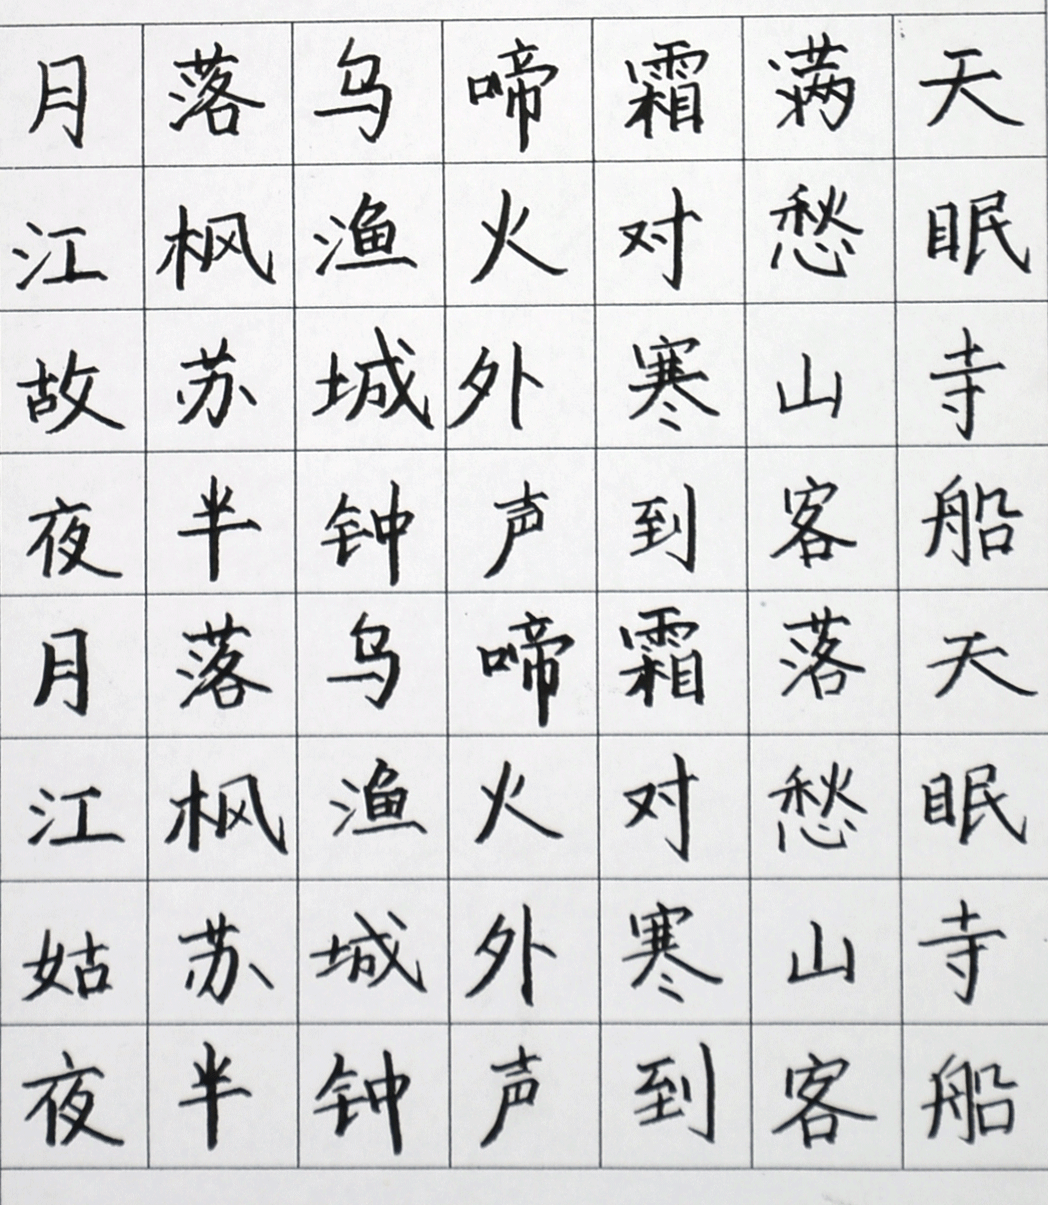 月落乌啼霜满天
江枫渔火对愁眠
故苏城外寒山寺
夜半钟声到客船
月落乌啼霜落天
江枫渔火对愁眠
姑苏城外寒山寺
夜半钟声到客船